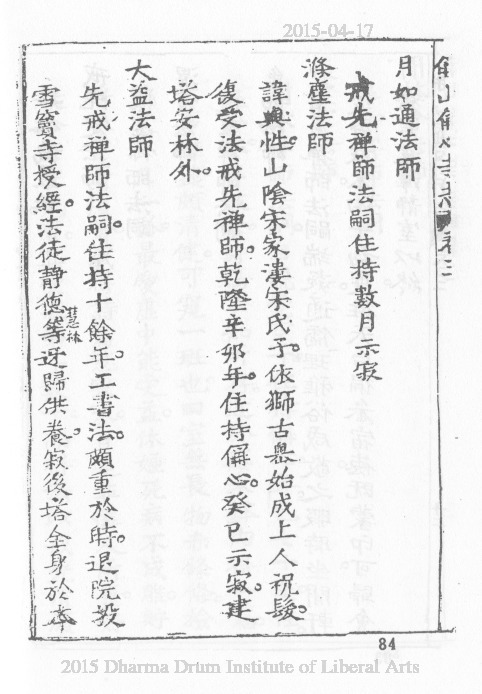 2015-04-17
月如通法師
戒先禅師法嗣住持數月示寂
滌塵法師
諱興性山陰宋家漊宋氏子依獅古巢始成上人祝髮。
復受法戒先禅師。乾隆辛卯年。住持偋心。癸巳示寂。建
塔安林外。
大盆法師
先戒禅師法嗣。住持十餘年。工書法。頗重於時。退院投
雪竇寺授經。法徒静德慧林等迓歸供養。寂後塔全身於本
卷三
84
2015 Dharma Drum Institute of Liberal Arts